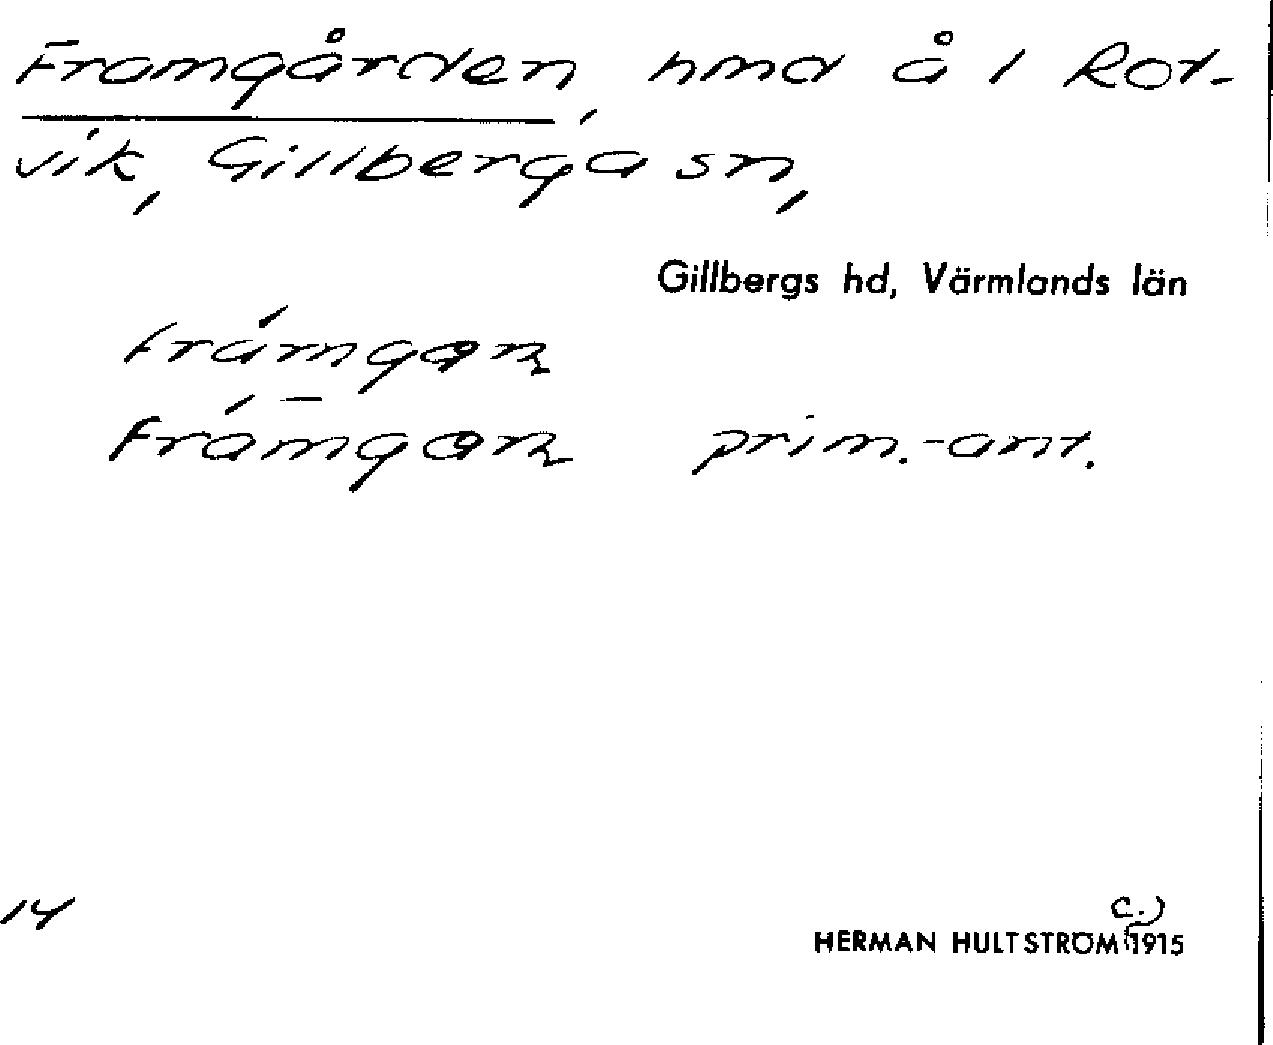 Framgården, hmd å 1 Rot-
vik, Gillberga sn,
Gillbergs hd, Värmlands län
prim.-ant.
14
c.)
HERMAN HULTSTRÖM 1915